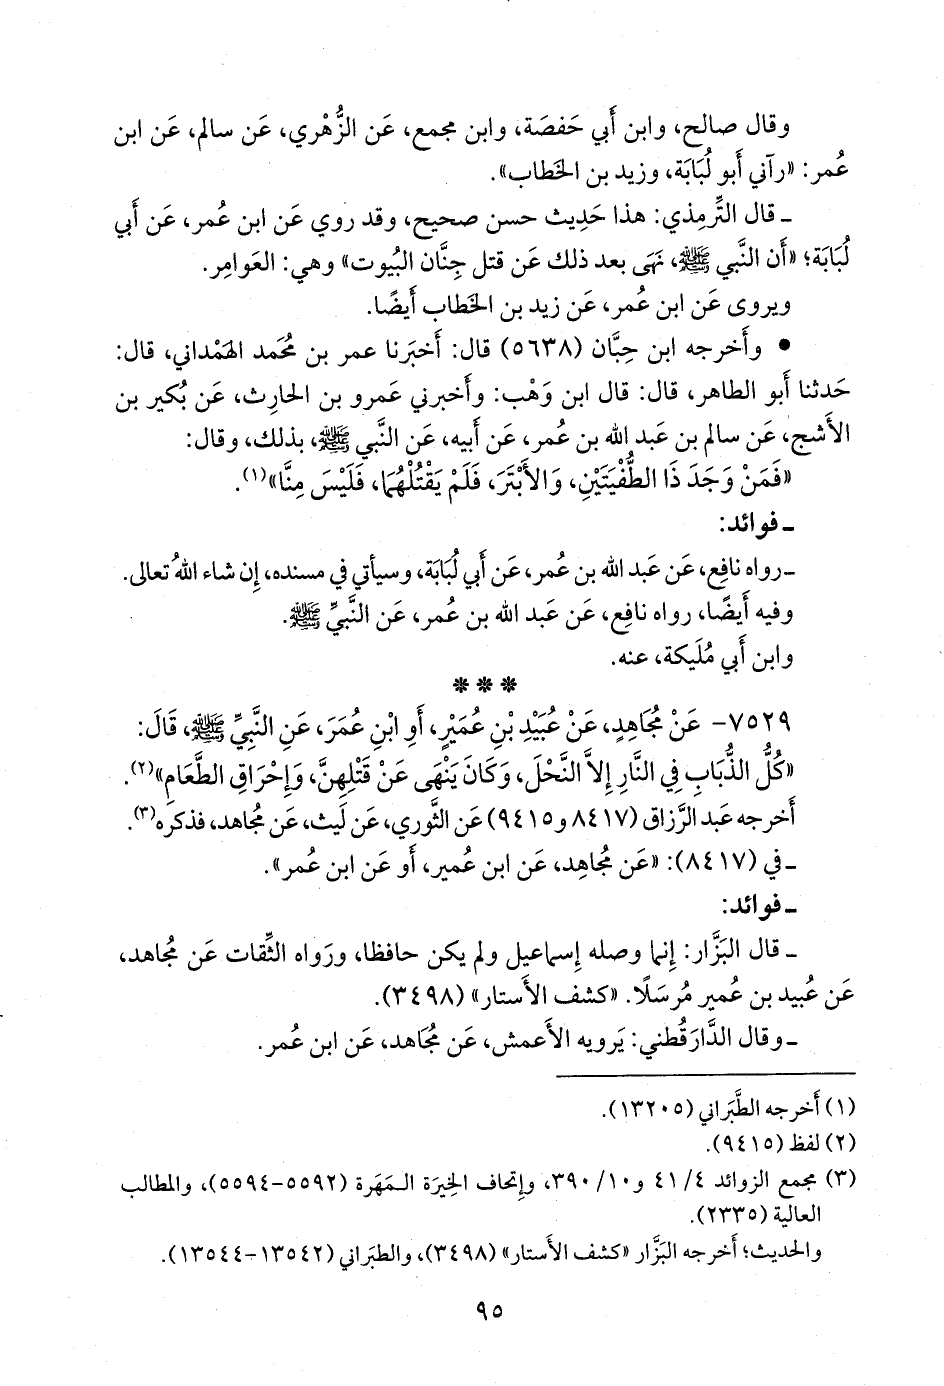 وقال صالح، وابن أَبي حَفصَة، وابن مجمع، عَن الزُّهْري، عَن سالم، عَن ابن
عُمر: «رآني أَبو لُبَابَة، وزيد بن الخَطاب».
ـ قال التِّرمِذي: هذا حَدِيث حسن صحيح، وقد روي عَن ابن عُمر، عَن أَبي
لُبَابَة؛ «أَن النَّبي ﷺ، نَهَى بعد ذلك عَن قتل جِنَّان البُيوت» وهي: العَوامِر.
ويروى عَن ابن عُمر، عَن زيد بن الخَطاب أَيضًا.
• وأَخرجه ابن حِبَّان (٥٦٣٨) قال: أَخبَرنا عمر بن مُحَمد الهَمْداني، قال:
حَدثنا أَبو الطاهر، قال: قال ابن وَهْب: وأَخبرني عَمرو بن الحارِث، عَن بُكير بن
الأَشج، عَن سالم بن عَبد الله بن عُمر، عَن أَبيه، عَن النَّبي ﷺ، بذلك، وقال:
«فَمَنْ وَجَدَ ذَا الطُّفْيَتَيْنِ، وَالأَبْتَرَ، فَلَمْ يَقْتُلْهُمَا، فَلَيْسَ مِنَّا»(١).
ـ فوائد:
ـ رواه نافِع، عَن عَبد الله بن عُمر، عَن أَبي لُبَابَة، وسيأتي في مسنده، إِن شاء اللهُ تعالى.
وفيه أَيضًا، رواه نافِع، عَن عَبد الله بن عُمر، عَن النَّبيِّ ﷺ.
وابن أَبي مُلَيكة، عنه.
* * *
٧٥٢٩- عَنْ مُجَاهِدٍ، عَنْ عُبَيْدِ بْنِ عُمَيْرٍ، أَوِ ابْنِ عُمَرَ، عَنِ النَّبِيِّ ﷺ، قَالَ:
«كُلُّ الذُّبَابِ فِي النَّارِ إِلاَّ النَّحْلَ، وَكَانَ يَنْهَى عَنْ قَتْلِهِنَّ، وَإِحْرَاقِ الطَّعَامِ»(٢).
أَخرجه عَبد الرَّزاق (٨٤١٧ و٩٤١٥) عَن الثَّوري، عَن لَيث، عَن مُجاهد، فذكرَه(٣).
ـ في (٨٤١٧): «عَن مُجاهِد، عَن ابن عُمير، أَو عَن ابن عُمر».
ـ فوائد:
ـ قال البَزَّار: إِنما وصله إِسماعيل ولم يكن حافظا، ورَواه الثِّقات عَن مُجاهد،
عَن عُبيد بن عُمير مُرسَلًا. «كشف الأَستار» (٣٤٩٨).
ـ وقال الدَّارَقُطني: يَرويه الأَعمش، عَن مُجَاهد، عَن ابن عُمر.
(١) أَخرجه الطَّبَراني (١٣٢٠٥).
(٢) لفظ (٩٤١٥).
(٣) مجمع الزوائد ٤/ ٤١ و١٠/ ٣٩٠، وإِتحاف الخِيرَة المَهَرة (٥٥٩٢-٥٥٩٤)، والمطالب
العالية (٢٣٣٥).
والحديث؛ أَخرجه البَزَّار «كشف الأَستار» (٣٤٩٨)، والطبَراني (١٣٥٤٢-١٣٥٤٤).
٩٥